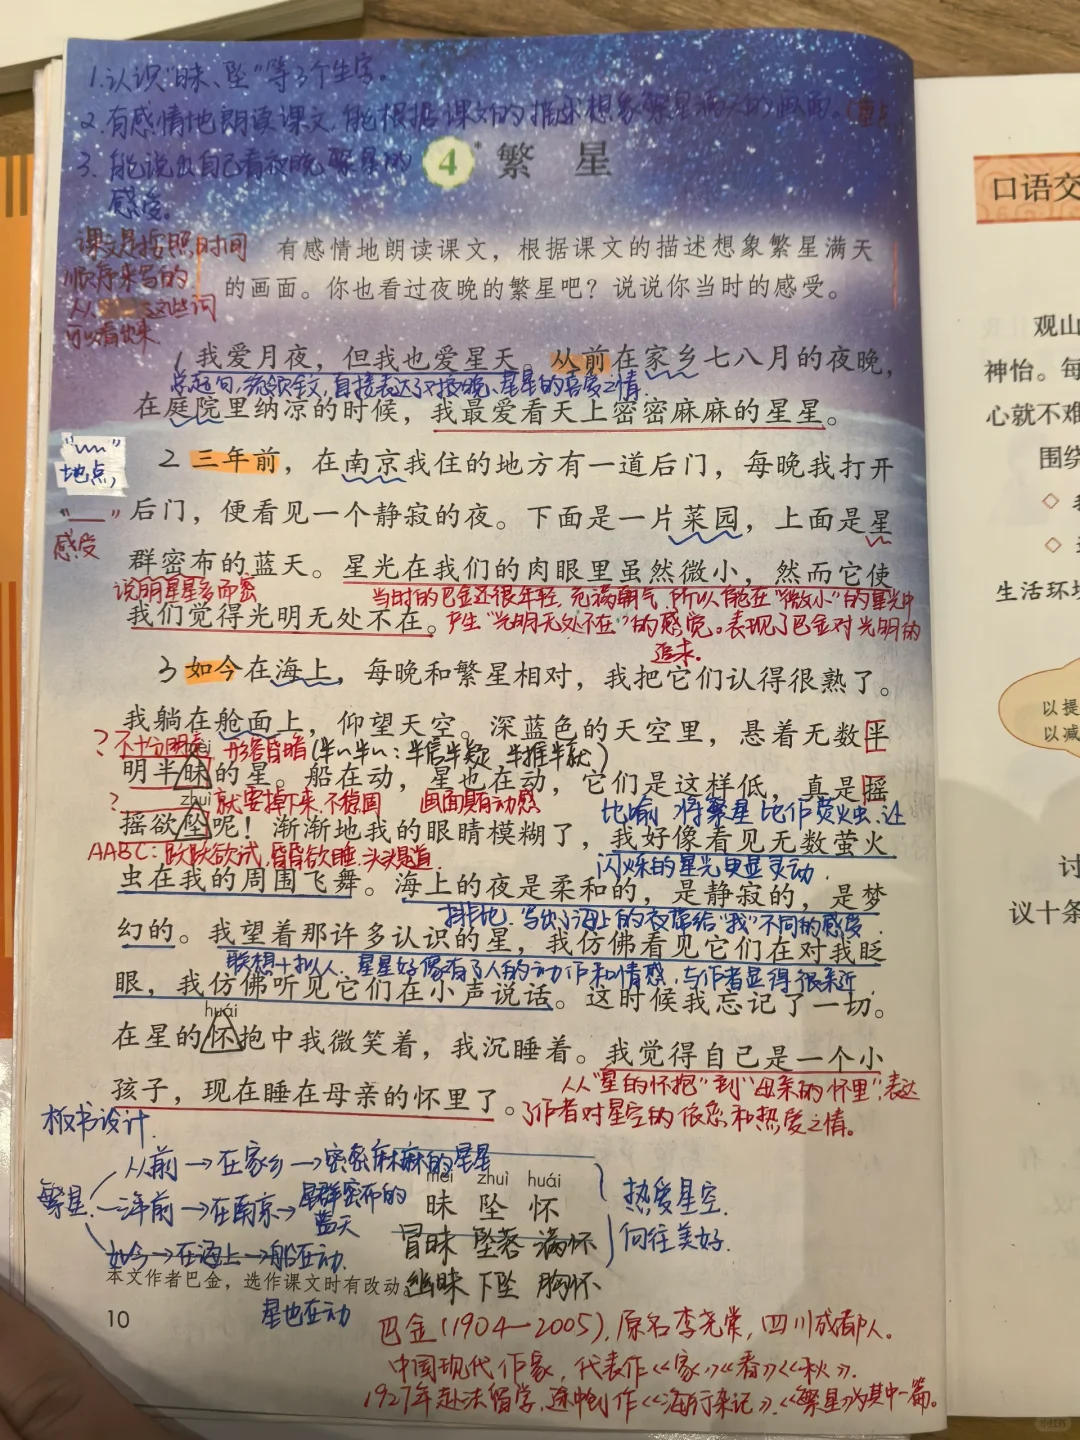 1.认识"昧、坠"等3个生字。
2.有感情地朗读课文,能根据课文的描述想象繁星满天的画面。(重点
3.能说出自己看夜晚繁星的
感受。
4* 繁 星
课文是按照时间
顺序来写的
从 这些词
可以看出来
有感情地朗读课文，根据课文的描述想象繁星满天
的画面。你也看过夜晚的繁星吧？说说你当时的感受。
1 我爱月夜，但我也爱星天。从前在家乡七八月的夜晚，
总起句,统领全文,直接表达了对夜晚、星星的喜爱之情.
在庭院里纳凉的时候，我最爱看天上密密麻麻的星星。
"﹏"
地点,
"__"
感受
2 三年前，在南京我住的地方有一道后门，每晚我打开
后门，便看见一个静寂的夜。下面是一片菜园，上面是星
群密布的蓝天。星光在我们的肉眼里虽然微小，然而它使
说明星星多而密
当时的巴金还很年轻,充满朝气,所以能在"微小"的星光中
我们觉得光明无处不在。
产生"光明无处不在"的感觉。表现了巴金对光明的
追求.
3 如今在海上，每晚和繁星相对，我把它们认得很熟了。
我躺在舱面上，仰望天空。深蓝色的天空里，悬着无数半
? 不十分明亮 形容昏暗(半~半~:半信半疑 半推半就)
mèi
明半昧的星。船在动，星也在动，它们是这样低，真是摇
zhuì
? 就要掉下来,不稳固 画面具有动感
比喻 将繁星比作萤火虫,让
摇欲坠呢！渐渐地我的眼睛模糊了，我好像看见无数萤火
AABC:跃跃欲试,昏昏欲睡,头头是道.
闪烁的星光更显灵动.
虫在我的周围飞舞。海上的夜是柔和的，是静寂的，是梦
排比.写出了海上的夜带给"我"不同的感受.
幻的。我望着那许多认识的星，我仿佛看见它们在对我眨
联想+拟人.星星好像有了人的动作和情感,与作者显得很亲近.
眼，我仿佛听见它们在小声说话。这时候我忘记了一切。
huái
在星的怀抱中我微笑着，我沉睡着。我觉得自己是一个小
从"星的怀抱"到"母亲的怀里",表达
孩子，现在睡在母亲的怀里了。
了作者对星空的依恋和热爱之情。
板书设计
繁星
从前→在家乡→密密麻麻的星星
三年前→在南京→星群密布的
蓝天
如今→在海上→船在动.
星也在动
热爱星空.
向往美好.
mèi zhuì huái
昧 坠 怀
冒昧 坠落 满怀
幽昧 下坠 胸怀
本文作者巴金，选作课文时有改动。
10
巴金(1904—2005),原名李尧棠,四川成都人。
中国现代作家,代表作《家》《春》《秋》.
1927年赴法留学,途中创作《海行杂记》.《繁星》为其中一篇。
口语交
观山
神怡。每
心就不难
围绕
生活环境
以提
以减
讨
议十条